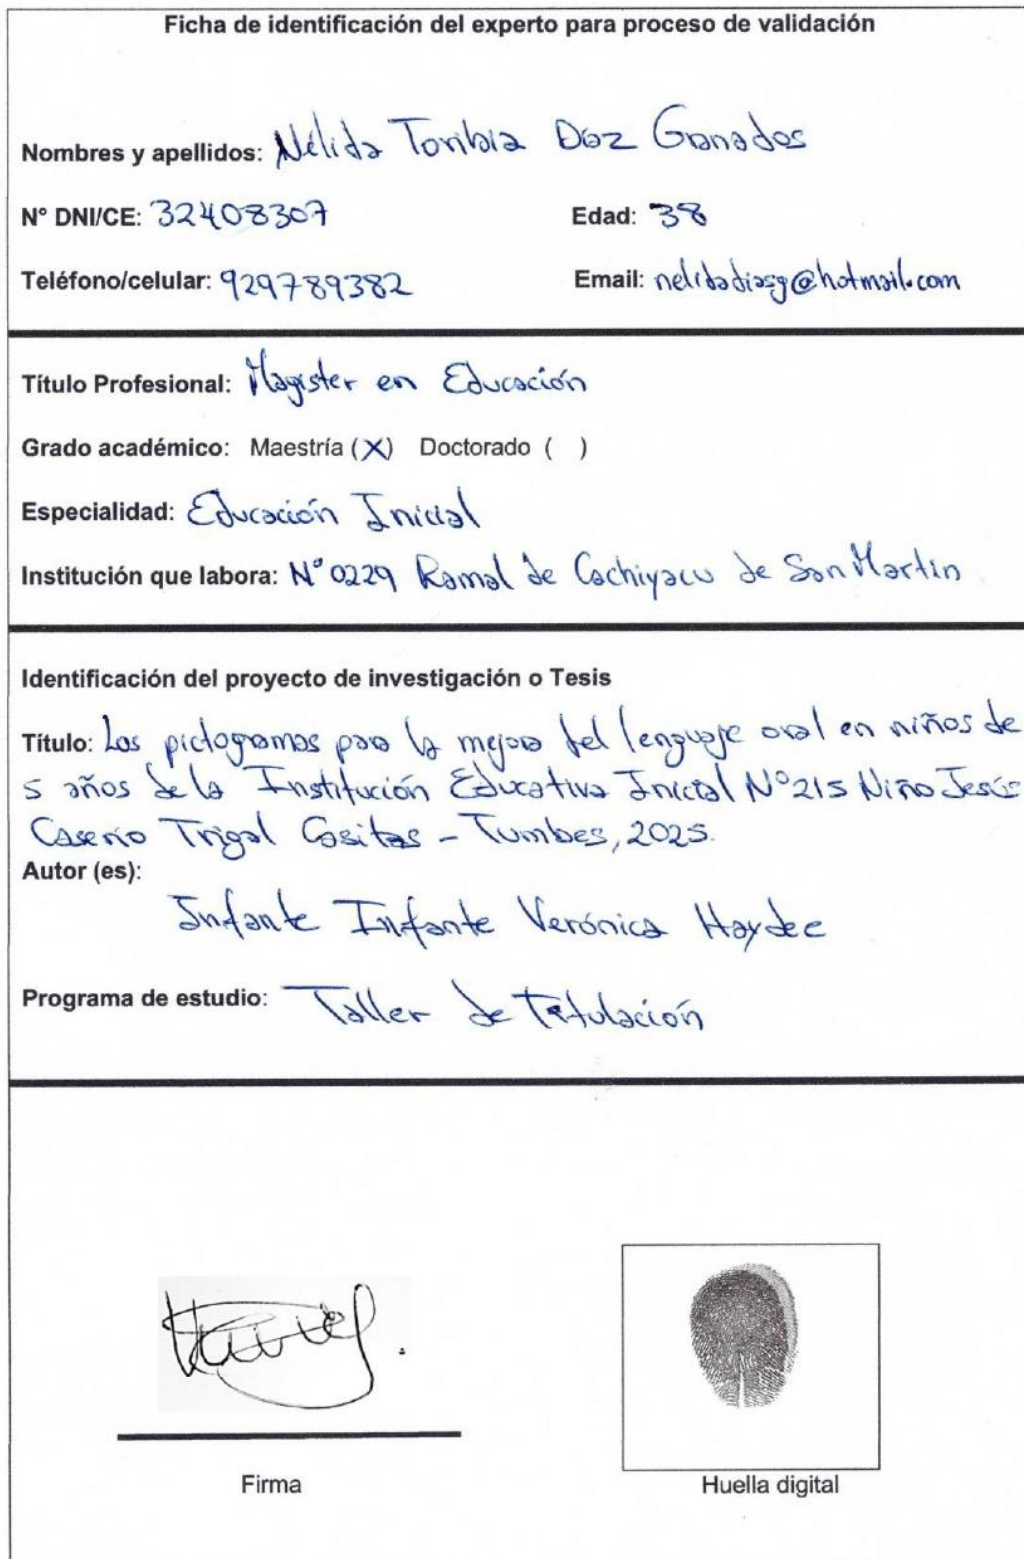 Ficha de identificación del experto para proceso de validación
Nombres y apellidos: Nélida Toribia Díaz Granados
N° DNI/CE: 32408307 Edad: 38
Teléfono/celular: 929789382 Email: nelidadiasg@hotmail.com
Título Profesional: Magister en Educación
Grado académico: Maestría (X) Doctorado ( )
Especialidad: Educación Inicial
Institución que labora: N° 0229 Ramal de Cachiyacu de San Martin
Identificación del proyecto de investigación o Tesis
Título: Los pictogramas para la mejora del lenguaje oral en niños de
5 años de la Institución Educativa Inicial N°215 Niño Jesús
Caserío Trigal Casitas - Tumbes, 2025.
Autor (es):
Infante Infante Verónica Haydee
Programa de estudio: Taller de Titulación
Firma Huella digital